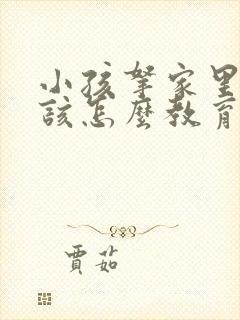 小孩拏家里
該怎麽教育
賈茹